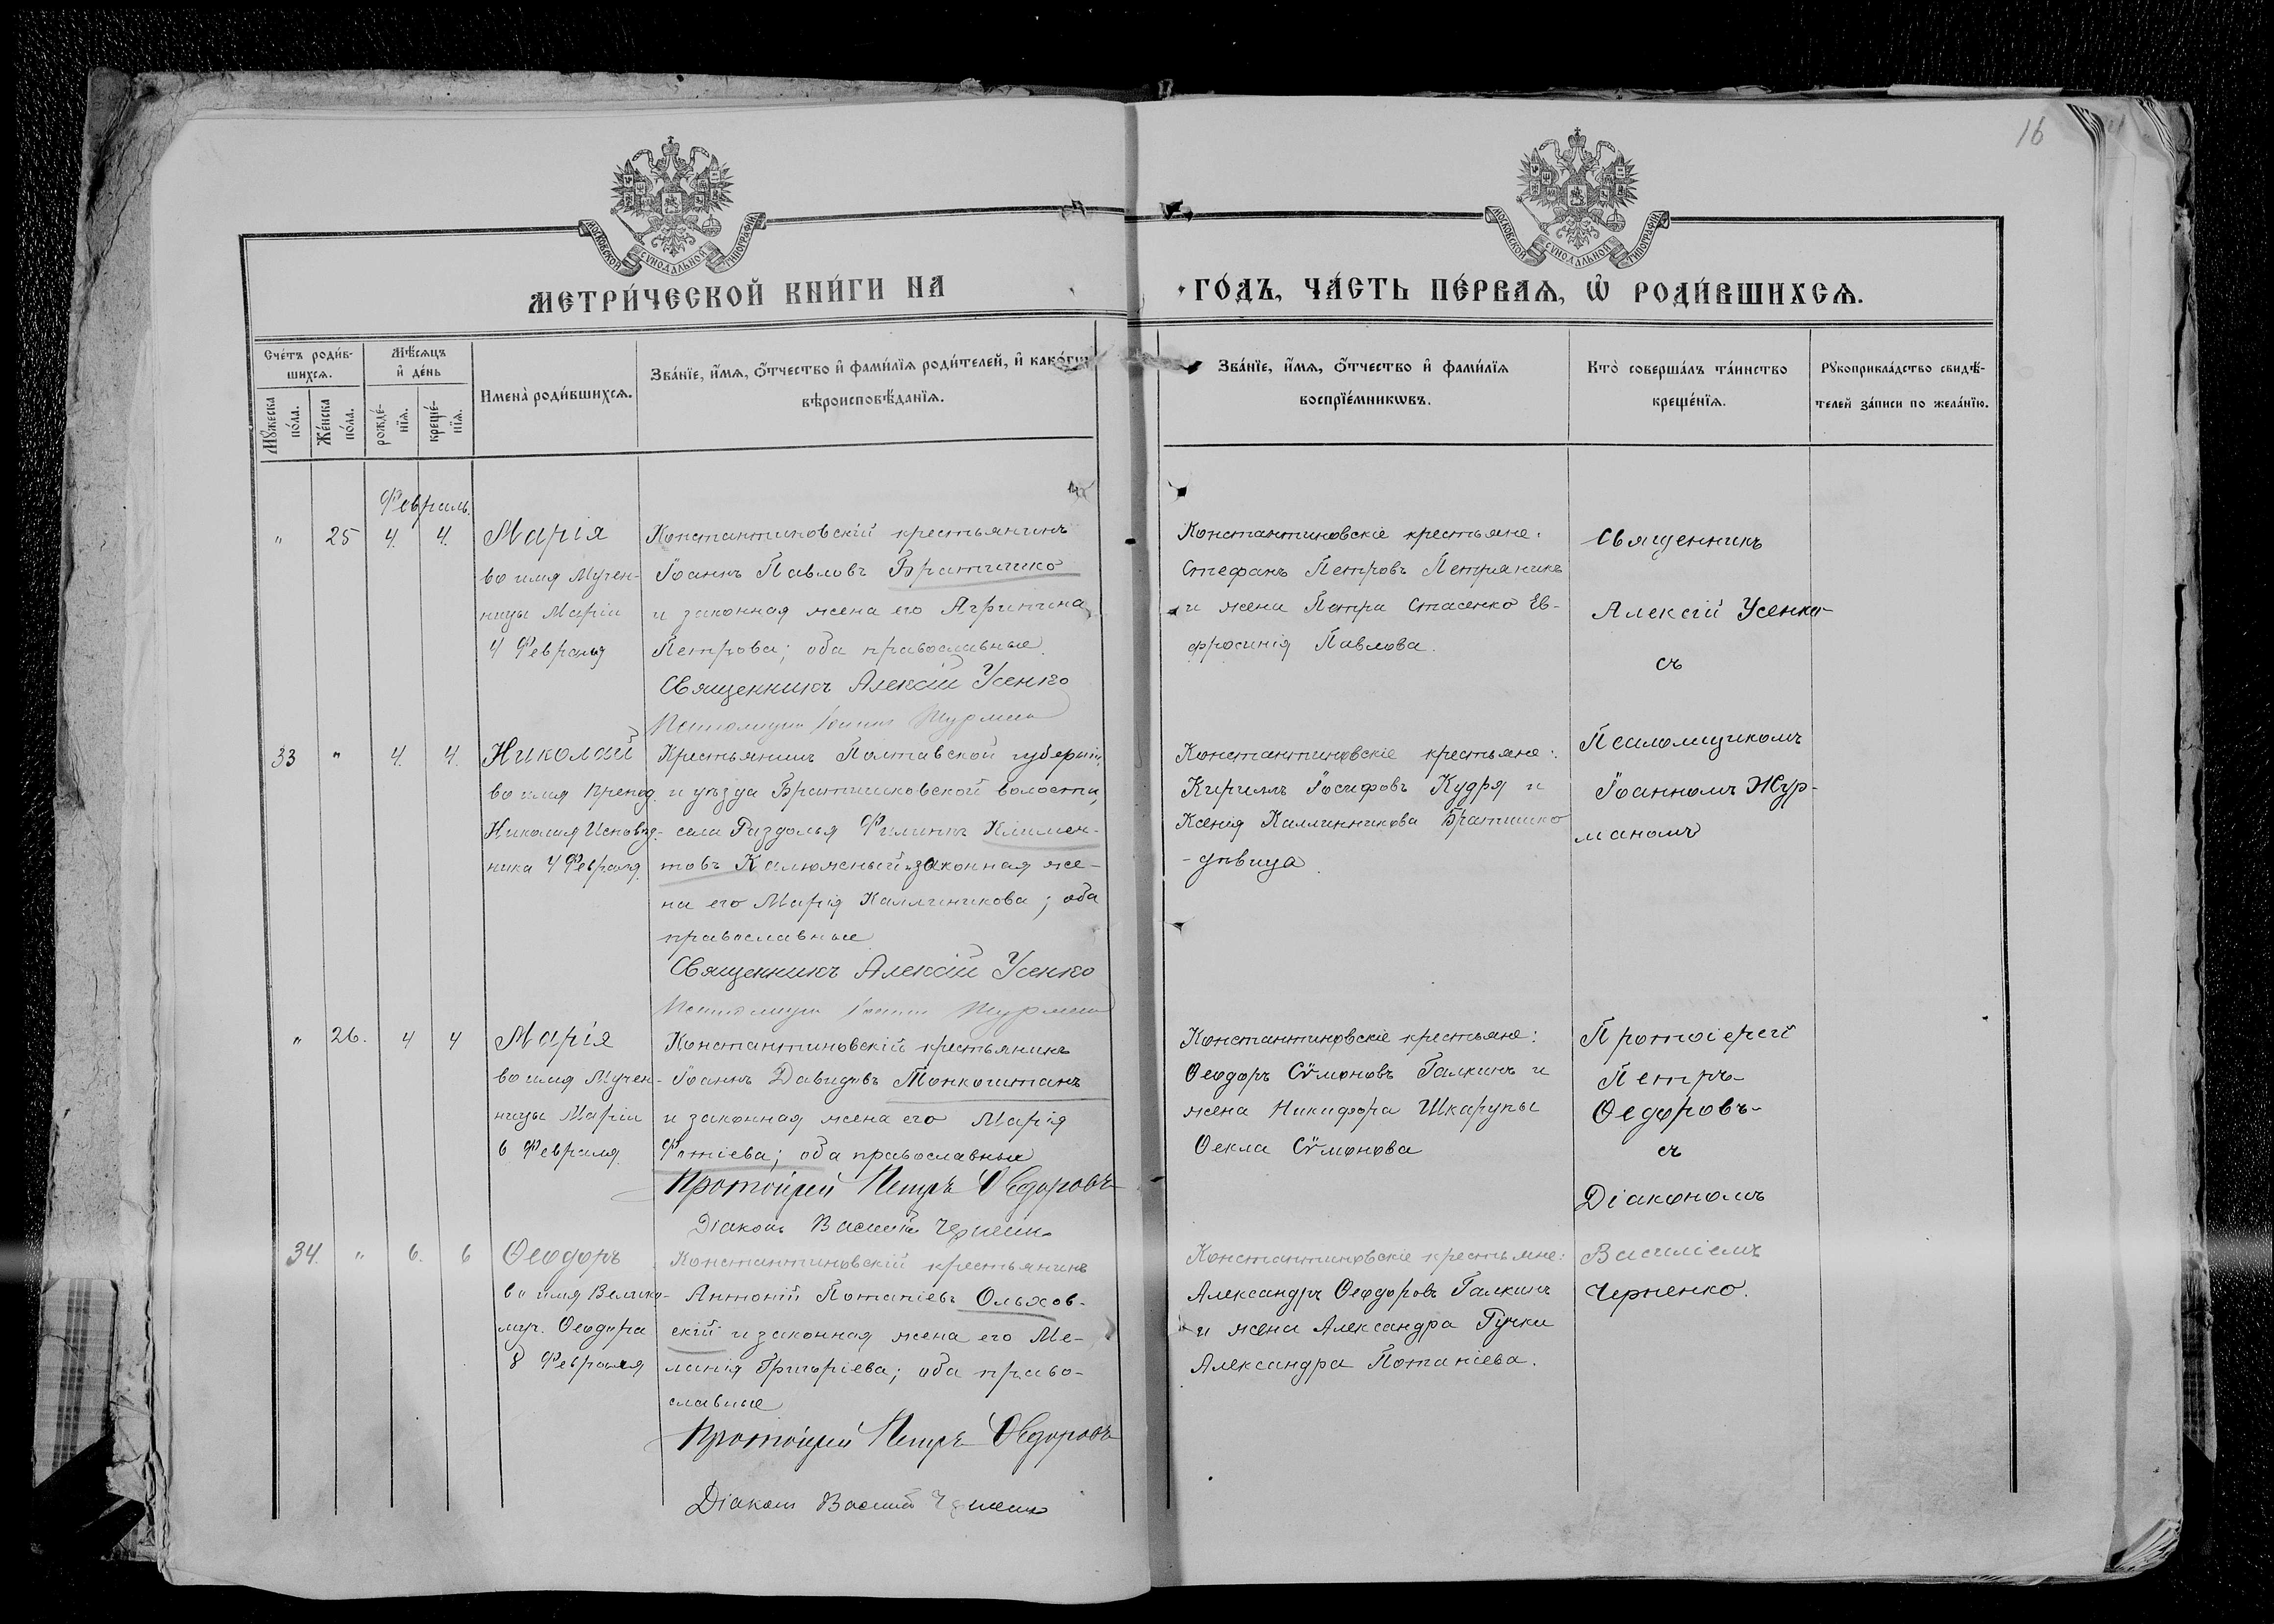 16
МОСКОВСКОЙ СѴНОДАЛЬНОЙ ТИПОГРАФІИ
МОСКОВСКОЙ СѴНОДАЛЬНОЙ ТИПОГРАФІИ
МЕТРИ́ЧЕСКОЙ КНИ́ГИ НА
ГО́ДЪ, ЧА́СТЬ ПЕ́РВАѦ, Ѽ РОДИ́ВШИХСѦ.
Сче́тъ роди́в-
шихсѧ.
Мѣ́сяцъ
и҆ де́нь
Мꙋ́жеска
по́ла.
Же́нска
по́ла.
рожде́-
нїѧ.
креще́-
нїѧ.
И҆мена̀ роди́вшихсѧ.
Зва́нїе, и҆́мѧ, ѻ҆́тчество и҆ фами́лїѧ роди́телей, и҆ како́гѡ
вѣроисповѣ́данїѧ.
Зва́нїе, и҆́мѧ, ѻ҆́тчество и҆ фами́лїѧ
воспрїе́мникѡвъ.
Кто̀ соверша́лъ та́инство
креще́нїѧ.
Рꙋкоприкла́дство свидѣ́-
телей за́писи по жела́нїю.
Февраль.
" 25 4. 4.
Марія
во имя Мучен-
ницы Маріи
4 Февраля
Константиновскій крестьянинъ
Іоаннъ Павловъ Братишко
и законная жена его Агрипина
Петрова; оба православные.
Священникъ Алексій Усенко
Псаломщикъ Іоаннъ Журманъ
Константиновскіе крестьяне:
Стефанъ Петровъ Петряникъ
и жена Петра Стасенко Ев-
фросинія Павлова.
Священникъ
Алексій Усенко
съ
Псаломщикомъ
Іоанномъ Жур-
маномъ
33 " 4. 4.
Николай
во имя Препод.
Николая Исповѣд-
ника 4 Февраля
Крестьянинъ Полтавской губерніи
и уѣзда Братишковской волости,
села Раздолья Филиппъ Климен-
товъ Калюжный и законная же-
на его Марія Каллиникова; оба
православные
Священникъ Алексій Усенко
Псаломщикъ Іоаннъ Журманъ
Константиновскіе крестьяне:
Кириллъ Іосифовъ Кудря и
Ксенія Каллинникова Братишко
-дѣвица.
" 26. 4 4
Марія
во имя Мучен-
ницы Маріи
6 Февраля
Константиновскій крестьянинъ
Іоаннъ Давидовъ Тонкоштанъ
и законная жена его Марія
Фотіева; оба православные
Протоіерей Петръ Ѳедоровъ
Діаконъ Василій Черненко
Константиновскіе крестьяне:
Ѳеодоръ Сѵмоновъ Галкинъ и
жена Никифора Шкарупы
Ѳекла Сѵмонова
Протоіерей
Петръ
Ѳедоровъ
съ
Діакономъ
Василіемъ
Черненко.
34. " 6. 6
Ѳеодоръ
во имя Велико-
муч. Ѳеодора
8 Февраля
Константиновскій крестьянинъ
Антоній Потапіевъ Ольхов-
скій и законная жена его Ме-
ланія Григоріева; оба право-
славные
Протоіерей Петръ Ѳедоровъ
Діаконъ Василій Черненко
Константиновскіе крестьяне:
Александръ Ѳеодоровъ Галкинъ
и жена Александра Гучки
Александра Потапіева.